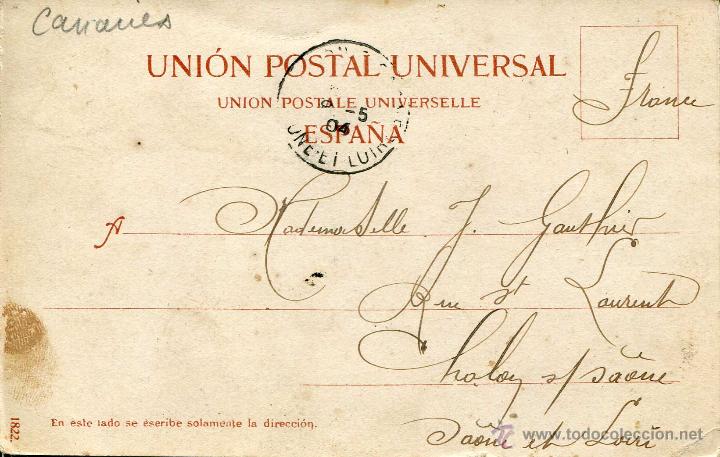 Canaries
UNIÓN POSTAL UNIVERSAL
UNION POSTALE UNIVERSELLE
ESPAÑA
France
-5
04
ONE-ET LOIRE
A Mademoiselle J. Gauthier
Rue St Laurent
Chalon s/saône
Saône et Loire
En este lado se escribe solamente la dirección.
1822
todocoleccion.net